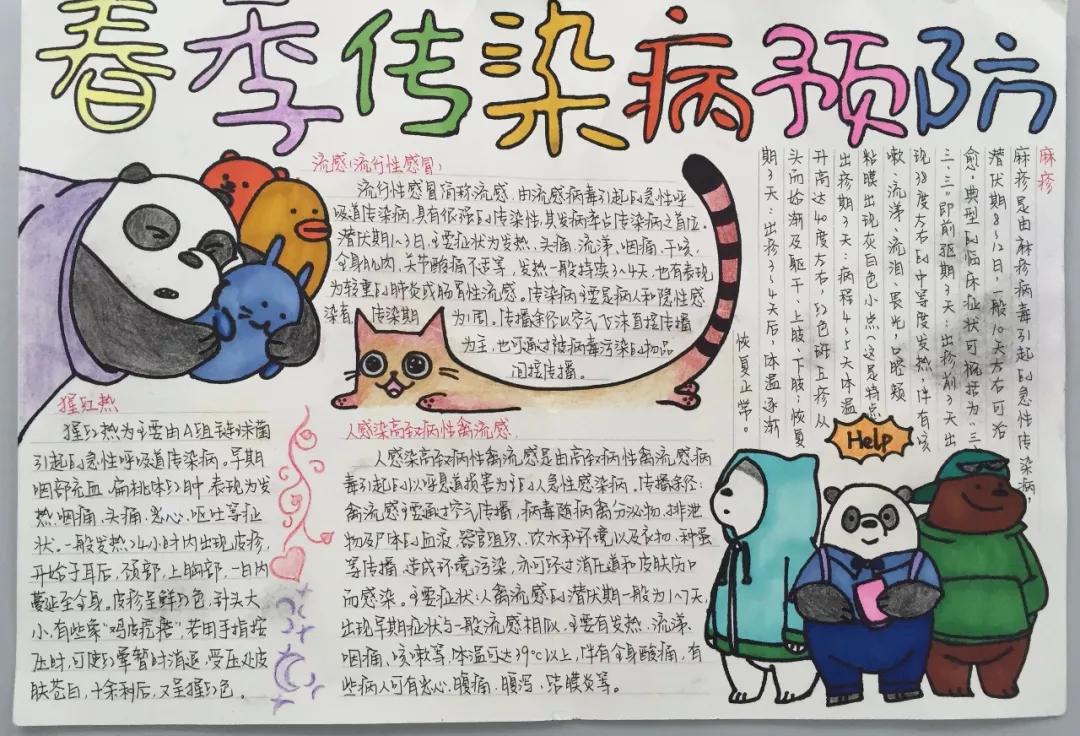 春季传染病预防
流感(流行性感冒)
流行性感冒简称流感,由流感病毒引起的急性呼
吸道传染病,具有很强的传染性,其发病率占传染病之首位。
潜伏期1~3日,主要症状为发热、头痛、流涕、咽痛、干咳,
全身肌肉、关节酸痛不适等,发热一般持续3~4天,也有表现
为较重的肺炎或肠胃性流感。传染病主要是病人和隐性感
染者。传染期
为1周。传播途径以空气飞沫直接传播
为主,也可通过被病毒污染的物品
间接传播。
麻疹
麻疹是由麻疹病毒引起的急性传染病,
潜伏期8~12日,一般10天左右可治
愈。典型的临床症状可概括为"三、
三、三",即前驱期3天:出疹前3天出
现38度左右的中等度发热,伴有咳
嗽、流涕、流泪、畏光,口腔颊
粘膜出现灰白色小点(这是特点
出疹期3天:病程4~5天体温
升高达40度左右,红色斑丘疹从
头而始渐及躯干、上肢、下肢;恢复
期3天:出疹3~4天后,体温逐渐
恢复正常。
猩红热
猩红热为主要由A组链球菌
引起的急性呼吸道传染病。早期
咽部充血、扁桃体红肿,表现为发
热、咽痛、头痛、恶心、呕吐等症
状。一般发热24小时内出现皮疹,
开始于耳后,颈部,上胸部,一日内
蔓延至全身。皮疹呈鲜红色,针头大
小,有些象"鸡皮疙瘩",若用手指按
压时,可使红晕暂时消退,受压处皮
肤苍白,十余秒后,又呈猩红色。
人感染高致病性禽流感
人感染高致病性禽流感是由高致病性禽流感病
毒引起的以呼吸道损害为主的人急性感染病。传播途径:
禽流感主要通过空气传播,病毒随病禽分泌物、排泄
物及尸体的血液、器官组织、饮水和环境以及衣物、种蛋
等传播,造成环境污染,亦可经过消化道和皮肤伤口
而感染。主要症状:人禽流感的潜伏期一般为1~7天,
出现早期症状与一般流感相似,主要有发热、流涕、
咽痛、咳嗽等,体温可达39℃以上,伴有全身酸痛,有
些病人可有恶心、腹痛、腹泻、结膜炎等。
Help